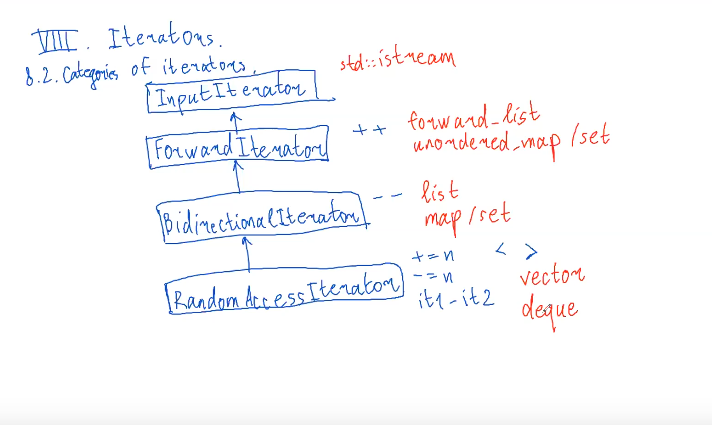 VIII. Iterators.
8.2. Categories of iterators.
std::istream
InputIterator
ForwardIterator ++ forward_list
unordered_map/set
BidirectionalIterator -- list
map/set
RandomAccessIterator += n < >
-= n vector
it1-it2 deque